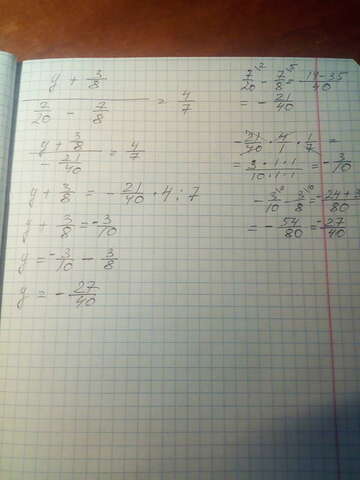 (y + 3/8) / (7/20 - 7/8) = 4/7
(y + 3/8) / (- 21/40) = 4/7
y + 3/8 = - 21/40 · 4 : 7
y + 3/8 = -3/10
y = -3/10 - 3/8
y = - 27/40
7/20 - 7/8 = (14-35)/40
= - 21/40
- 21/40 · 4/1 · 1/7 =
= (3·1·1)/(10·1·1) = - 3/10
- 3/10 - 3/8 = (-24+3)/80
= - 54/80 = -27/40